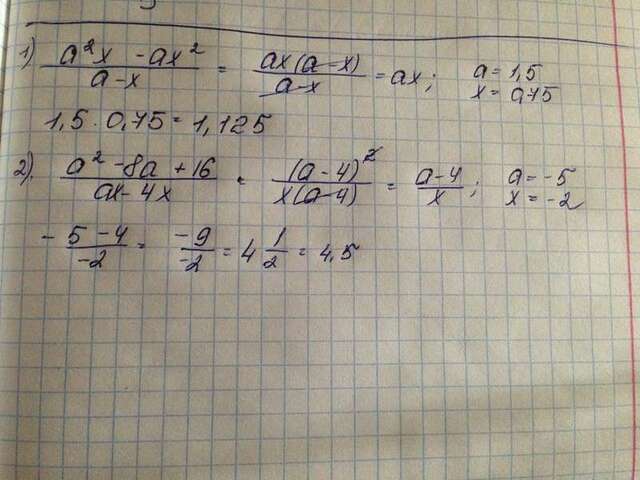 1) (a²x - ax²)/(a - x) = (ax(a - x))/(a - x) = ax; a = 1,5 x = 0,75
1,5 · 0,75 = 1,125
2). (a² - 8a + 16)/(ax - 4x) = (a - 4)²/(x(a - 4)) = (a - 4)/x; a = -5 x = -2
(-5 - 4)/(-2) = (-9)/(-2) = 4 1/2 = 4,5